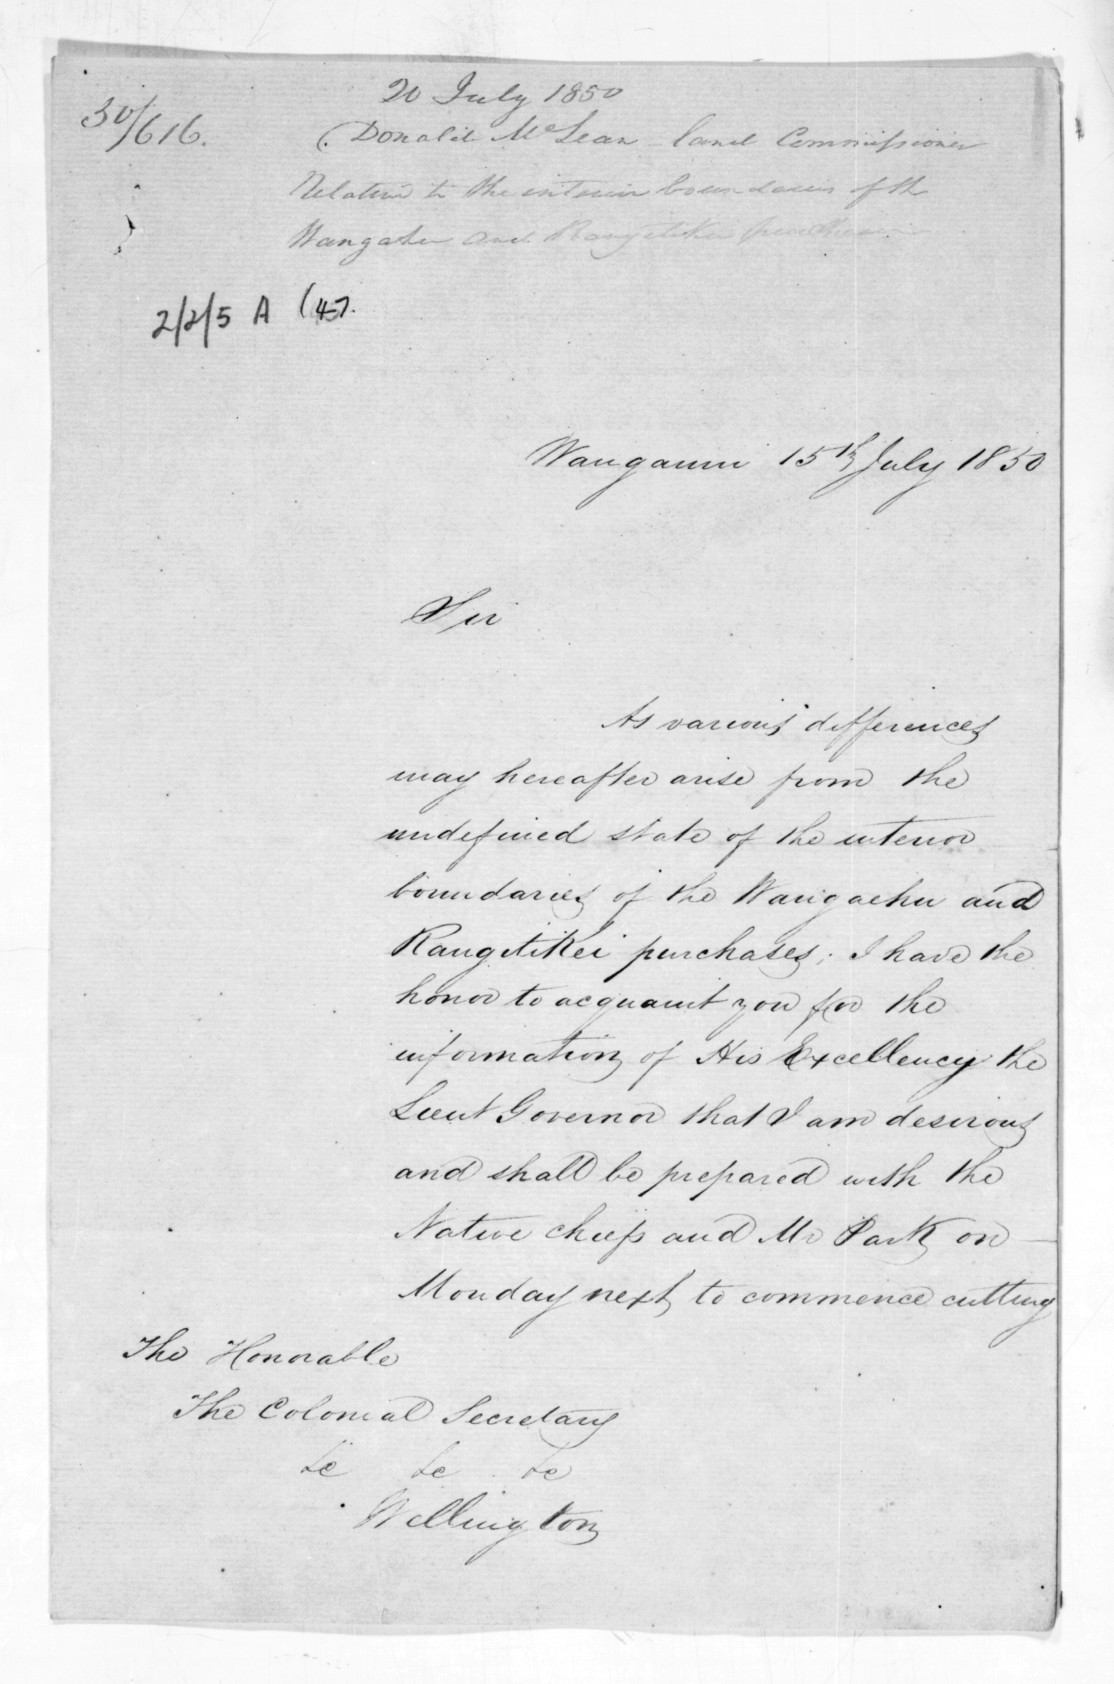 20 July 1850
50/616.
Donald McLean land Commissioner
Relative to the interior boundaries of the
Wangaehu and Rangitikei purchases
2/2/5 A (47.
Wanganui 15th July 1850
Sir
As various differences
may hereafter arise from the
undefined state of the interior
boundaries of the Wangaehu and
Rangitikei purchases; I have the
honor to acquaint you for the
information of His Excellency the
Lieut Governor that I am desirous
and shall be prepared with the
Native chiefs and Mr Park on
Monday next to commence cutting
The Honorable
The Colonial Secretary
&c &c &c
Wellington